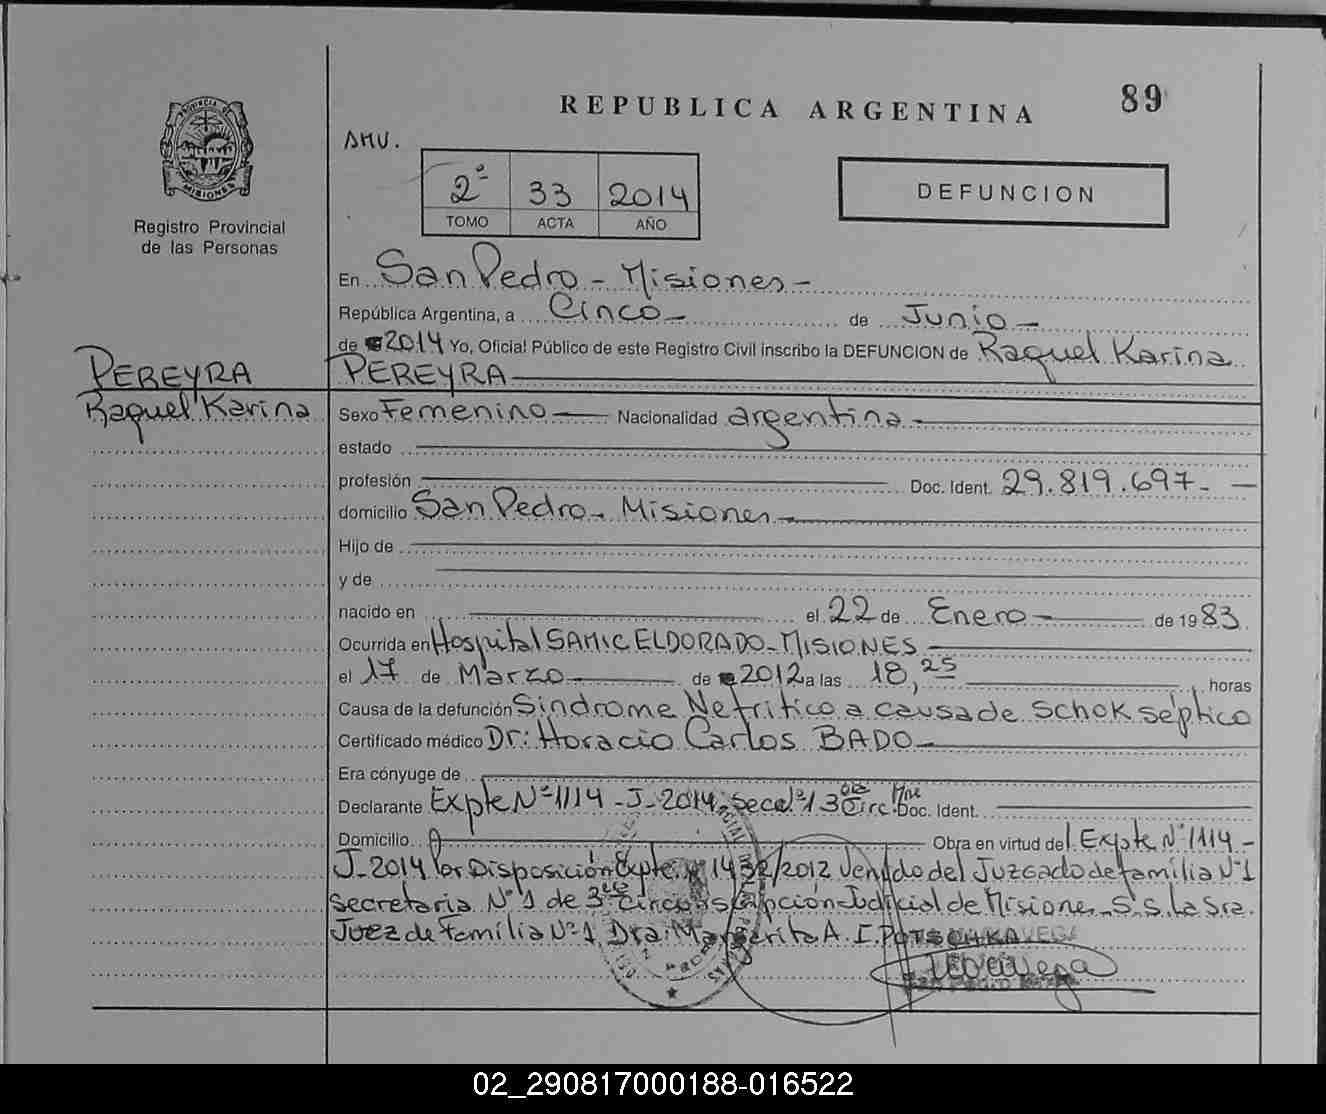 89
REPUBLICA ARGENTINA
PROVINCIA DE
MISIONES
Registro Provincial
de las Personas
2º 33 2014
TOMO ACTA AÑO
DEFUNCION
En San Pedro - Misiones -
República Argentina, a Cinco - de Junio -
de 2014 Yo, Oficial Público de este Registro Civil inscribo la DEFUNCION de Raquel Karina
PEREYRA
PEREYRA
Raquel Karina
Sexo Femenino Nacionalidad argentina -
estado
profesión Doc. Ident. 29.819.697. -
domicilio San Pedro - Misiones -
Hijo de
y de
nacido en el 22 de Enero - de 1983
Ocurrida en Hospital SAMIC ELDORADO - MISIONES -
el 17 de Marzo - de 2012 a las 18,25 horas
Causa de la defunción Sindrome Nefritico a causa de Schok séptico
Certificado médico Dr: Horacio Carlos BADO -
Era cónyuge de
Declarante Expte Nº 1114 - J - 2014 - Doc. Ident.
Domicilio Obra en virtud del Expte Nº 1114 -
J - 2014 por Disposición Expte. 1432/2012 Venido del Juzgado de familia Nº 1
secretaria Nº 1 de 3era Circunscripción Judicial de Misiones - S.S. la Sra.
Juez de Familia Nº 1, Dra: Margarita A. I. POTSCHKA
02_290817000188-016522